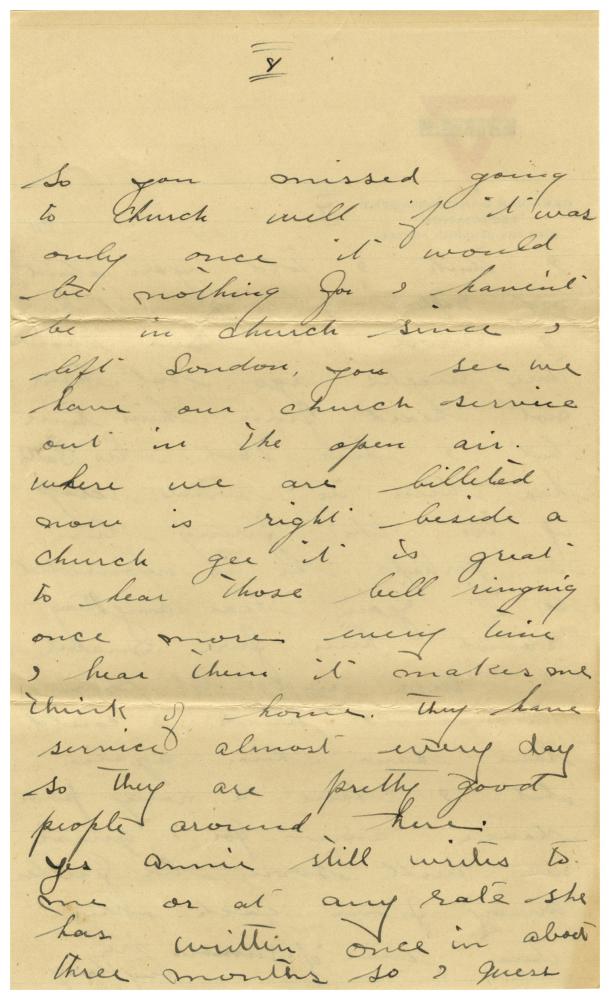 8
So you missed going
to church well if it was
only once it would
be nothing for I havent
be in church since I
left London, you see we
have our church service
out in the open air.
where we are billeted
now is right beside a
church gee it is great
to hear those bell ringing
once more every time
I hear them it makes me
think of home. They have
service almost every day
so they are pretty good
people around here.
yes annie still writes to
me or at any rate she
has written once in about
three months so I guess